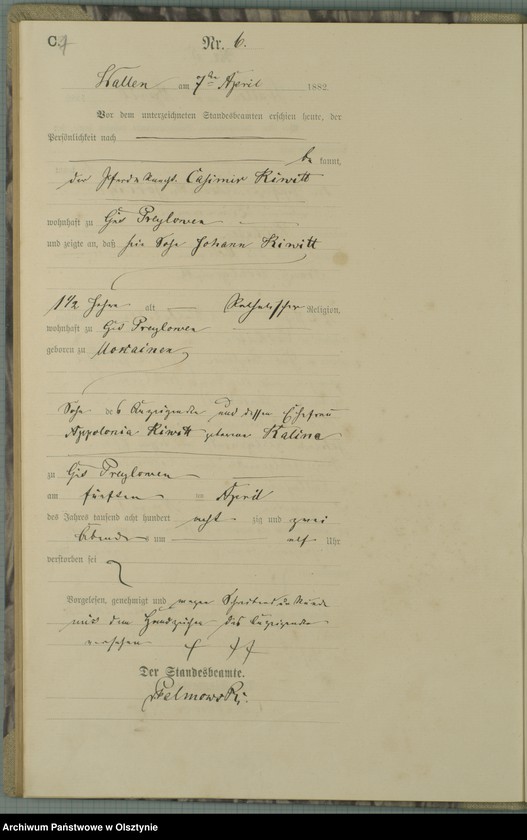 C.
Nr. 6.
Wallen am 7ten April 1882
Vor dem unterzeichneten Standesbeamten erschien heute, der
Persönlichkeit nach
be kannt,
der Pferdeknecht Casimir Kiwitt
wohnhaft zu Gut Preylowen
und zeigte an, daß sein Sohn Johann Kiwitt
1 1/2 Jahre alt Katholischer Religion,
wohnhaft zu Gut Preylowen
geboren zu Mokainen
Sohn des Anzeigenden und dessen Ehefrau
Appolonia Kiwitt geborene Kalina
zu Gut Preylowen
am fünften April
des Jahres tausend acht hundert acht zig und zwei
Abends um elf Uhr
verstorben sei
Vorgelesen, genehmigt und wegen Schreibens
mit dem Handzeichen des Anzeigenden
versehen
Der Standesbeamte.
Archiwum Państwowe w Olsztynie